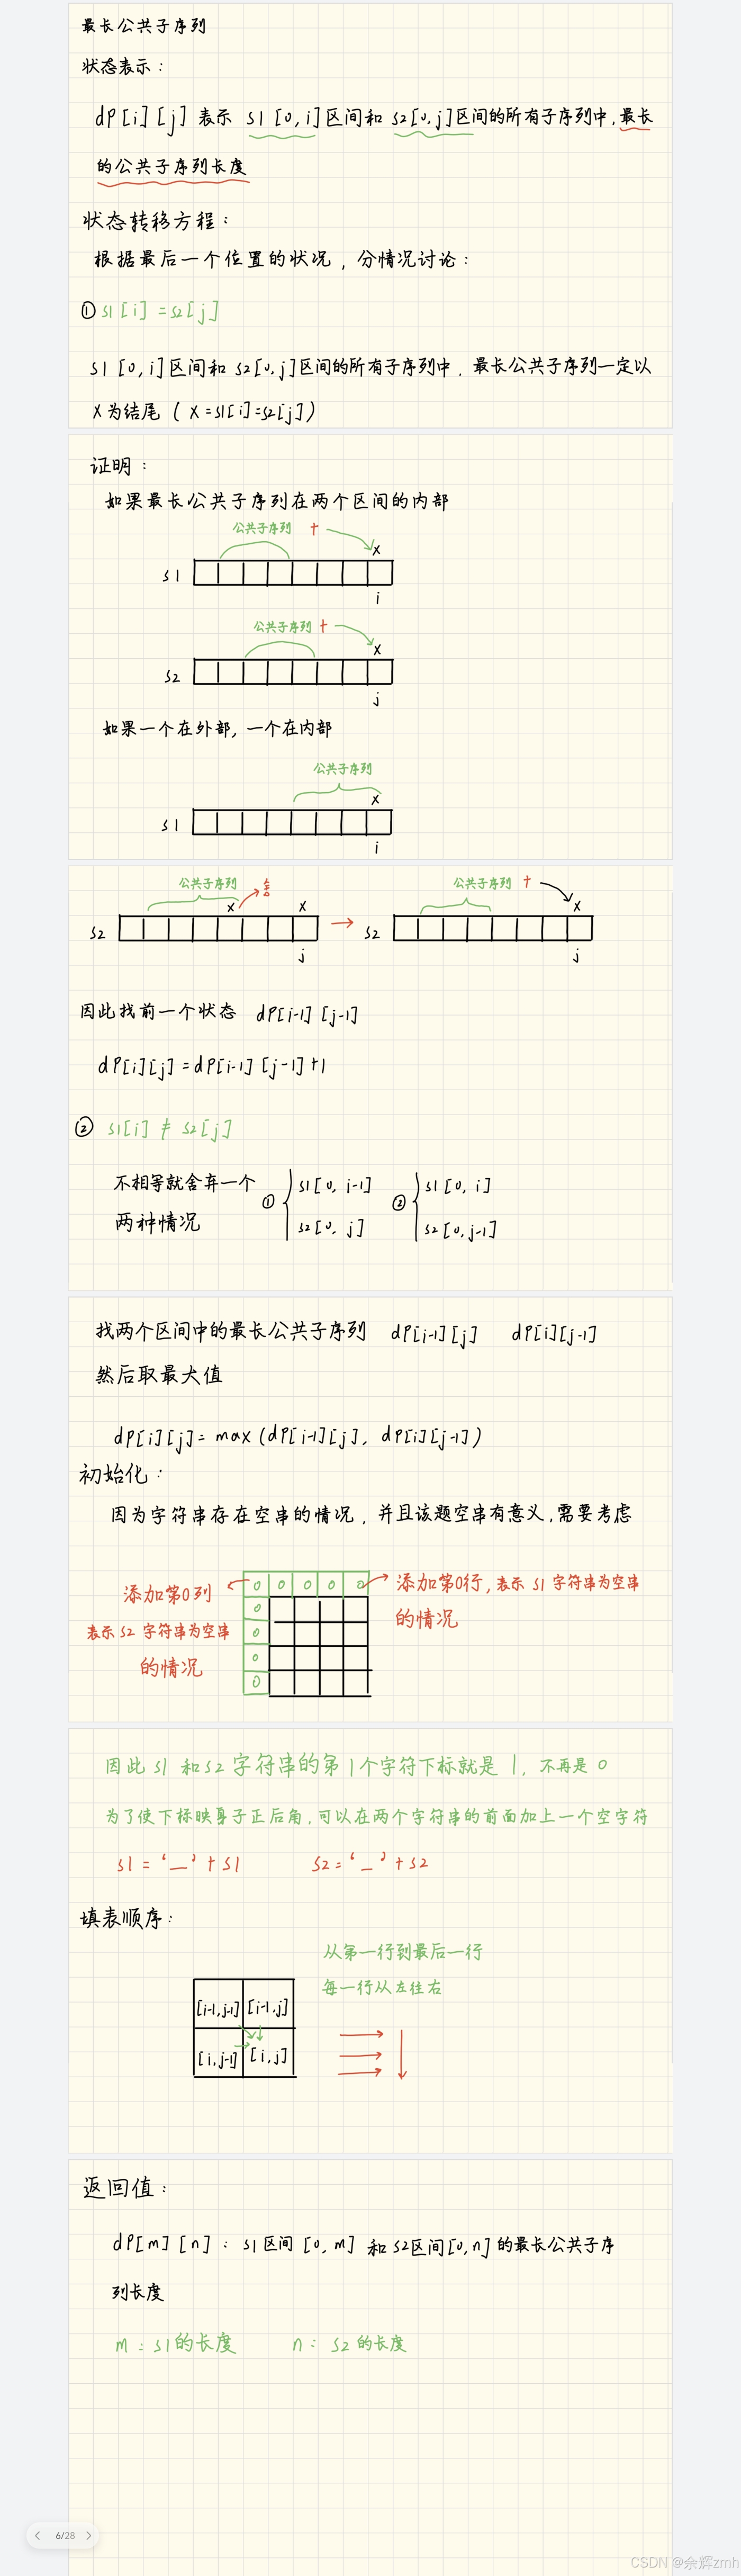 最长公共子序列
状态表示：
dp[i][j] 表示 s1[0,i]区间和 s2[0,j]区间的所有子序列中，最长
的公共子序列长度
状态转移方程：
根据最后一个位置的状况，分情况讨论：
① s1[i]=s2[j]
s1[0,i]区间和 s2[0,j]区间的所有子序列中，最长公共子序列一定以
x为结尾（x=s1[i]=s2[j]）
证明：
如果最长公共子序列在两个区间的内部
公共子序列 + x
s1
i
公共子序列 + x
s2
j
如果一个在外部，一个在内部
公共子序列
x
s1
i
公共子序列 舍 公共子序列 +
x x x
s2 → s2
j j
因此找前一个状态 dp[i-1][j-1]
dp[i][j]=dp[i-1][j-1]+1
② s1[i] ≠ s2[j]
不相等就舍弃一个 ① s1[0, i-1] ② s1[0, i]
两种情况 s2[0, j] s2[0,j-1]
找两个区间中的最长公共子序列 dp[i-1][j] dp[i][j-1]
然后取最大值
dp[i][j]=max(dp[i-1][j], dp[i][j-1])
初始化：
因为字符串存在空串的情况，并且该题空串有意义，需要考虑
添加第0列 0 0 0 0 0 添加第0行，表示 s1 字符串为空串
0 的情况
表示 s2 字符串为空串 0
的情况 0
0
因此 s1 和 s2 字符串的第1个字符下标就是 1，不再是 0
为了使下标映射正后角，可以在两个字符串的前面加上一个空字符
s1=‘_’+s1 s2=‘_’+s2
填表顺序：
从第一行到最后一行
每一行从左往右
[i-1,j-1] [i-1,j]
[i,j-1] [i,j]
返回值：
dp[m][n]：s1区间[0,m] 和s2区间[0,n]的最长公共子序
列长度
m：s1的长度 n：s2的长度
6/28
CSDN @余辉zmh